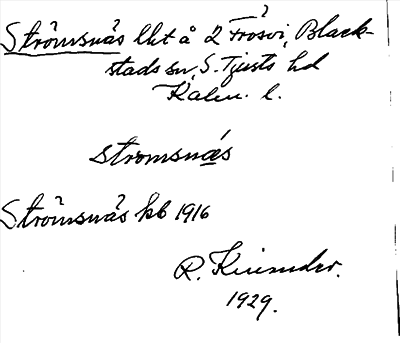 Strömsnäs lht å 2 Frösvi, Black-
stads sn, S. Tjusts hd
Kalm. l.
strömsnäs
Strömsnäs kb 1916
R.
1929.